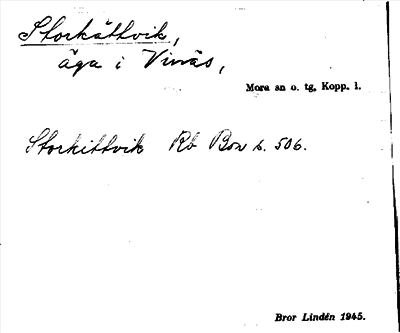 Storkåttvik,
äga i Vinäs,
Mora sn o. tg, Kopp. l.
Storkittvik Rb Box 6. 506.
Bror Lindén 1945.